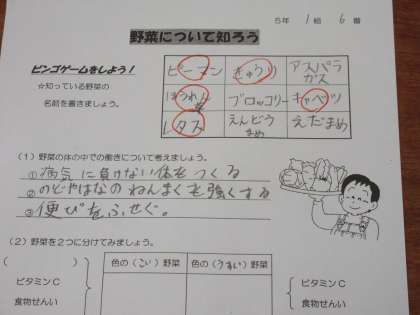 5年 1組 6番
野菜について知ろう
ビンゴゲームをしよう!
☆知っている野菜の
名前を書きましょう。
ピーマン きゅうり アスパラガス
ほうれん草 ブロッコリー キャベツ
レタス えんどうまめ えだまめ
(1)野菜の体の中での働きについて考えましょう。
①病気に負けない体をつくる
②のどやはなのねんまくを強くする
③便ぴをふせぐ。
(2)野菜を2つに分けてみましょう。
( )
色の(こい)野菜 色の(うすい)野菜
ビタミンC ビタミンC
食物せんい 食物せんい